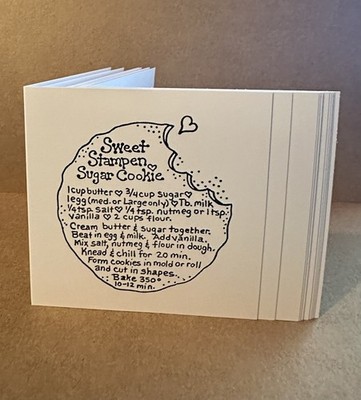 Sweet
Stampen
Sugar Cookie
1 cup butter ♡ 3/4 cup sugar ♡
1 egg (med. or Large only) ♡ 1 Tb. milk
1/4 tsp. salt ♡ 1/4 tsp. nutmeg or 1 tsp.
vanilla ♡ 2 cups flour.
Cream butter & sugar together.
Beat in egg & milk. Add vanilla.
Mix salt, nutmeg & flour in dough.
Knead & chill for 20 min.
Form cookies in mold or roll
and cut in shapes.
Bake 350°
10-12 min.